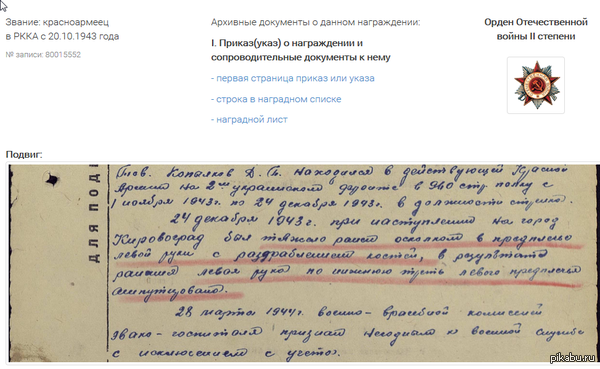 Звание: красноармеец
в РККА с 20.10.1943 года
№ записи: 80015552
Архивные документы о данном награждении:
I. Приказ(указ) о награждении и
сопроводительные документы к нему
- первая страница приказ или указа
- строка в наградном списке
- наградной лист
Орден Отечественной
войны II степени
Подвиг:
ДЛЯ ПОДШ
Тов. Копылков Д. находился в действующей Красной
Армии на 2ом украинском фронте в 960 стр. полку с
1 ноября 1943г. по 24 декабря 1943г. в должности стрелка.
24 декабря 1943г. при наступлении на город
Кировоград был тяжело ранен осколком в предплечье
левой руки с раздроблением костей, в результате
ранения левая рука по нижнюю треть левого предплечья
ампутирована.
28 марта 1944г. военно-врачебной комиссией
эвако-госпиталя признан негодным к военной службе
с исключением с учета.
pikabu.ru